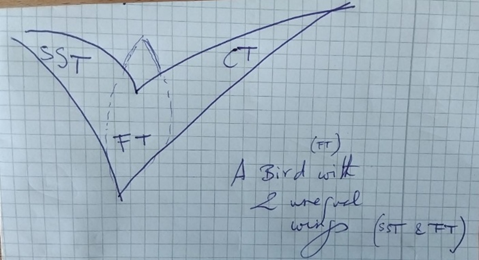 SST
CT
FT
(FT)
A Bird with
2 unequal
wings (SST & FT)